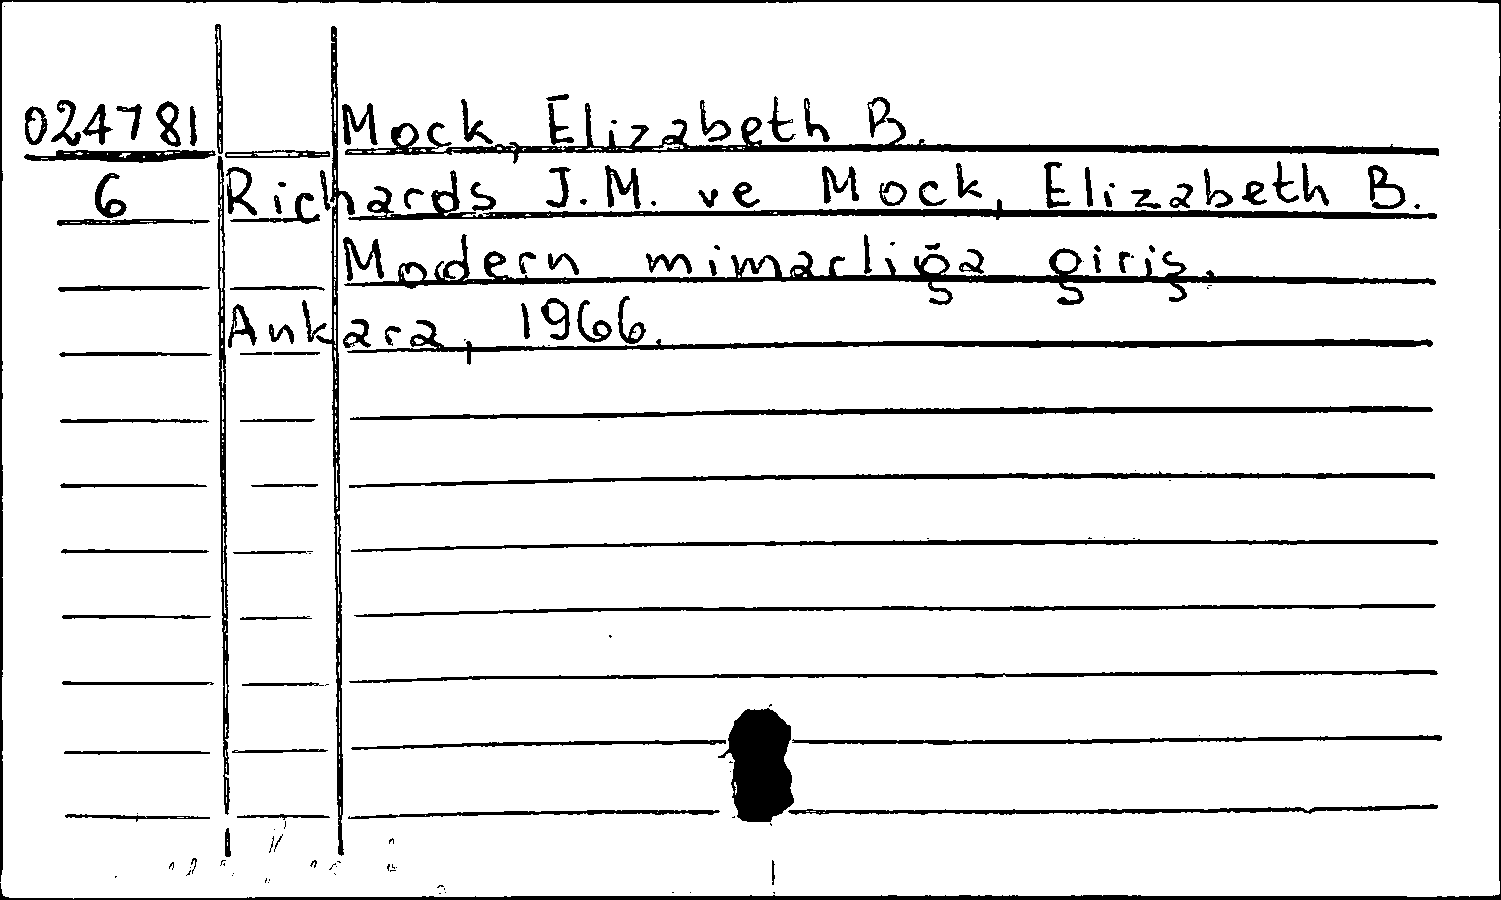 024781 Mock, Elizabeth B.
6 Richards J.M. ve Mock, Elizabeth B.
Modern mimarliğa giriş.
Ankara, 1966.